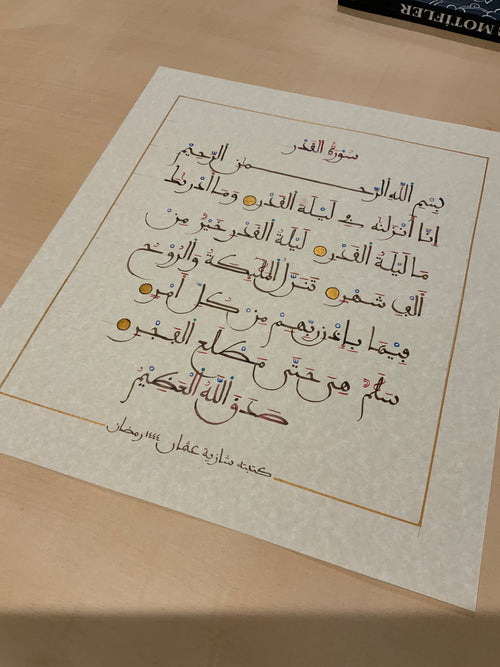 سُورَةُ الْقَدْرِ
بِسْمِ اللَّهِ الرَّحْمٰنِ الرَّحِيمِ
إِنَّا أَنْزَلْنٰهُ فِي لَيْلَةِ الْقَدْرِ وَمَا أَدْرٰىكَ
مَا لَيْلَةُ الْقَدْرِ لَيْلَةُ الْقَدْرِ خَيْرٌ مِنْ
أَلْفِ شَهْرٍ تَنَزَّلُ الْمَلٰئِكَةُ وَالرُّوحُ
فِيهَا بِإِذْنِ رَبِّهِمْ مِنْ كُلِّ أَمْرٍ
سَلٰمٌ هِيَ حَتَّى مَطْلَعِ الْفَجْرِ
صَدَقَ اللَّهُ الْعَظِيمُ
كتبته شازية عثمان ١٤٤٤ رمضان
MOTIFLER